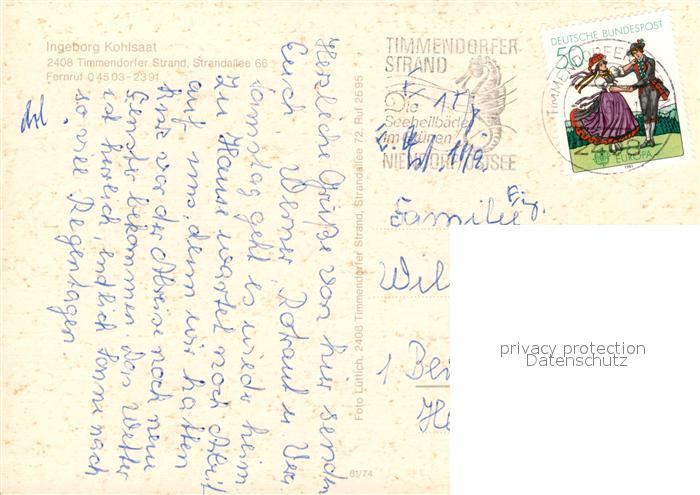 Ingeborg Kohlsaat
2408 Timmendorfer Strand, Strandallee 66
Fernruf 0 45 03 - 23 91
Herzliche Grüße von hier senden
Euch Werner, Rotraud u. Vera
Samstag geht es wieder heim
zu Hause wartet noch Arbeit
auf uns, denn wir hatten
kurz vor der Abreise noch neue
Fenster bekommen. Das Wetter
ist herrlich, endlich Sonne nach
so viel Regentagen.
Foto Lüttich, 2408 Timmendorfer Strand, Strandallee 72, Ruf 25 95
81/74
TIMMENDORFER
STRAND
Die
Seeheilbäder
im Grünen
NIENDORF/OSTSEE
DEUTSCHE BUNDESPOST
50
EUROPA
1981
TIMMENDORFER
Familie
Wil
1 Ber
He
privacy protection
Datenschutz